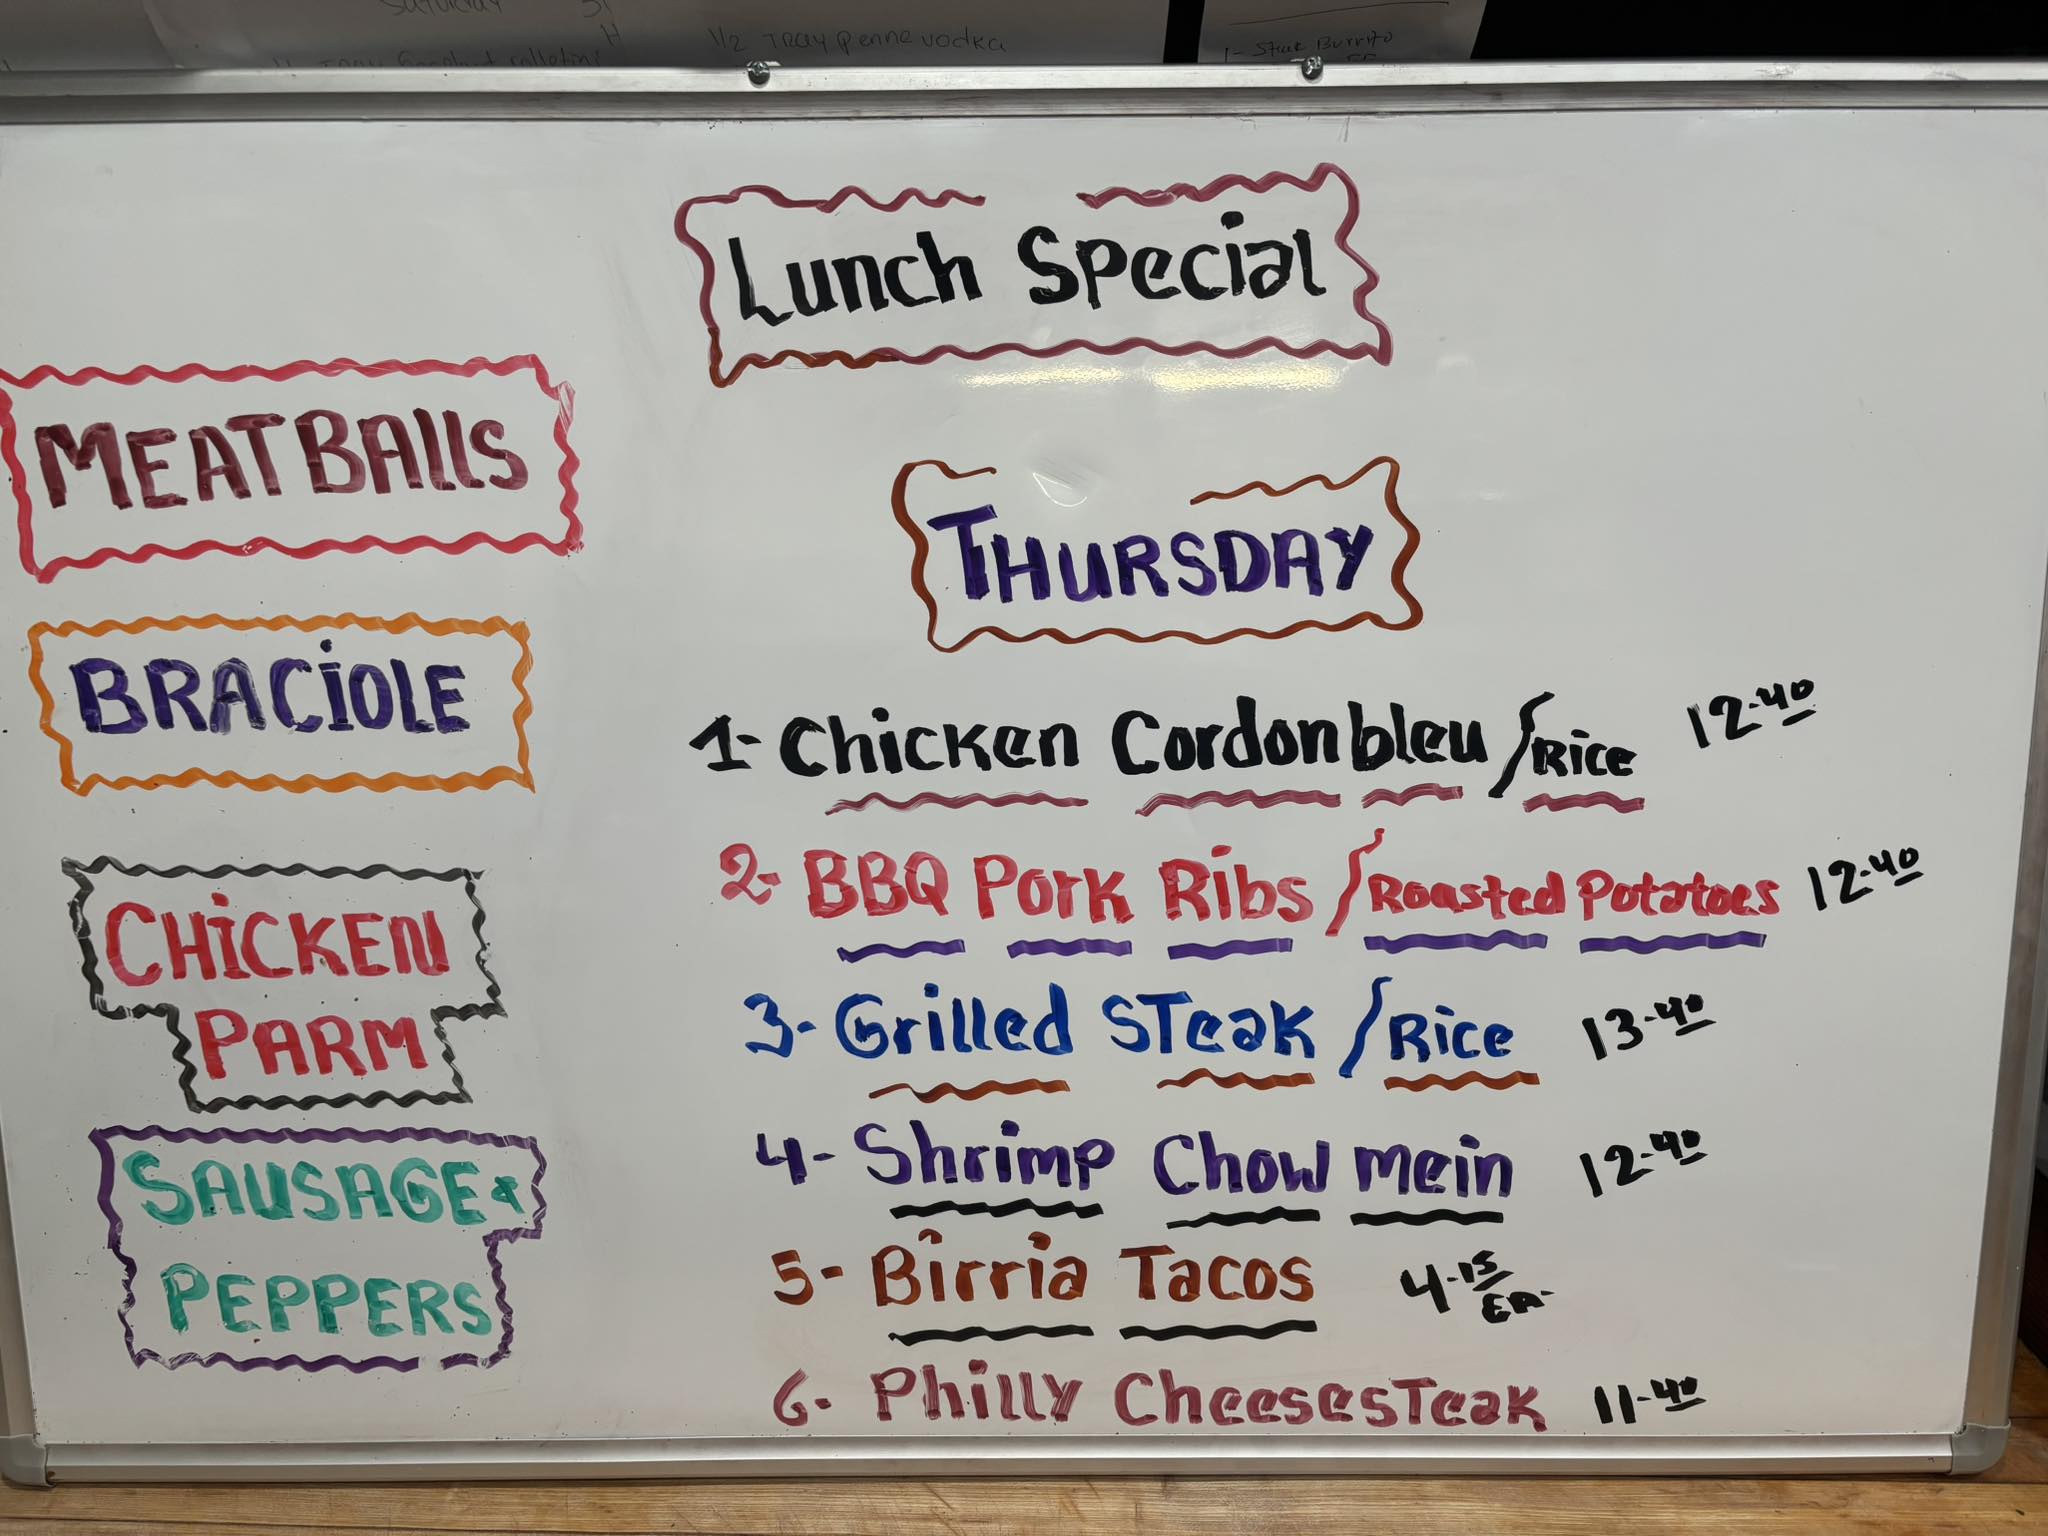 Saturday
1/2 Tray penne vodka
1- Steak Burrito
Lunch Special
THURSDAY
1- Chicken Cordon bleu / Rice 12-40
2- BBQ Pork Ribs / Roasted Potatoes 12-40
3- Grilled STeak / Rice 13-40
4- Shrimp Chow mein 12-40
5- Birria Tacos 4-15 EA-
6- Philly CheesesTeak 11-40
MEATBAllS
BRACiOLE
CHiCKEN
PARM
SAUSAGE &
PEPPERS